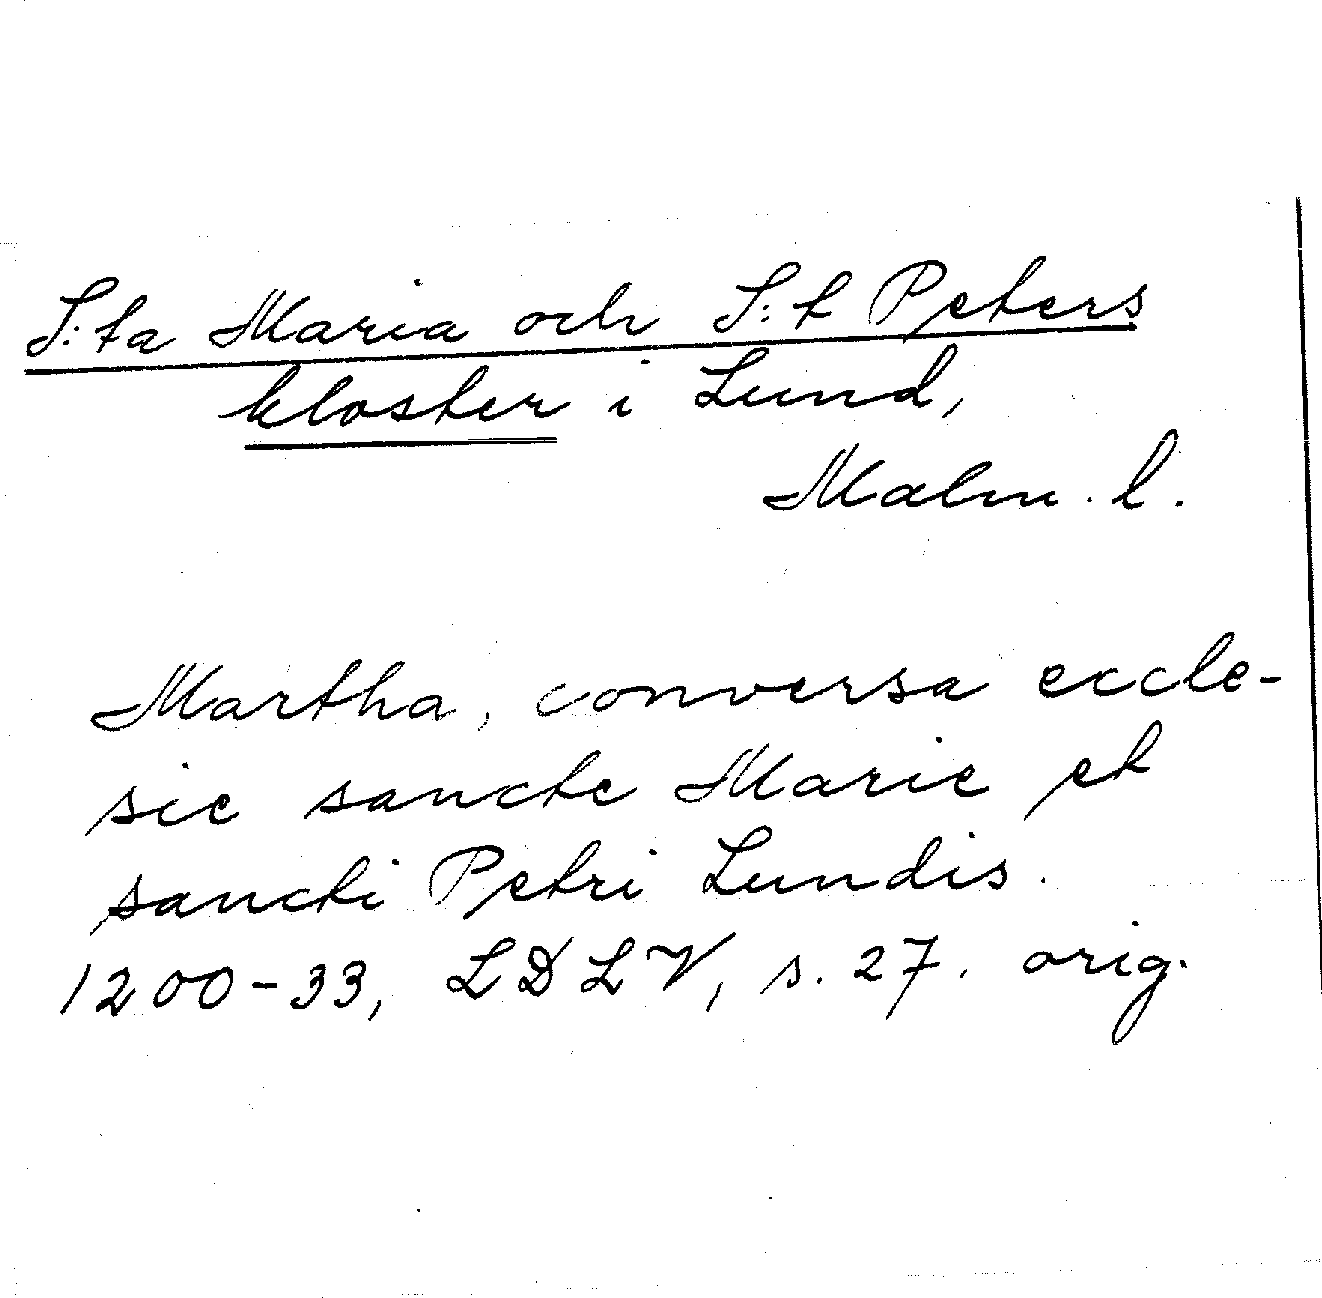 S:ta Maria och S:t Peters
kloster i Lund,
Malm. l.
Martha, conversa eccle-
sie sancte Marie et
sancti Petri Lundis.
1200-33, LDLV, s. 27. orig.